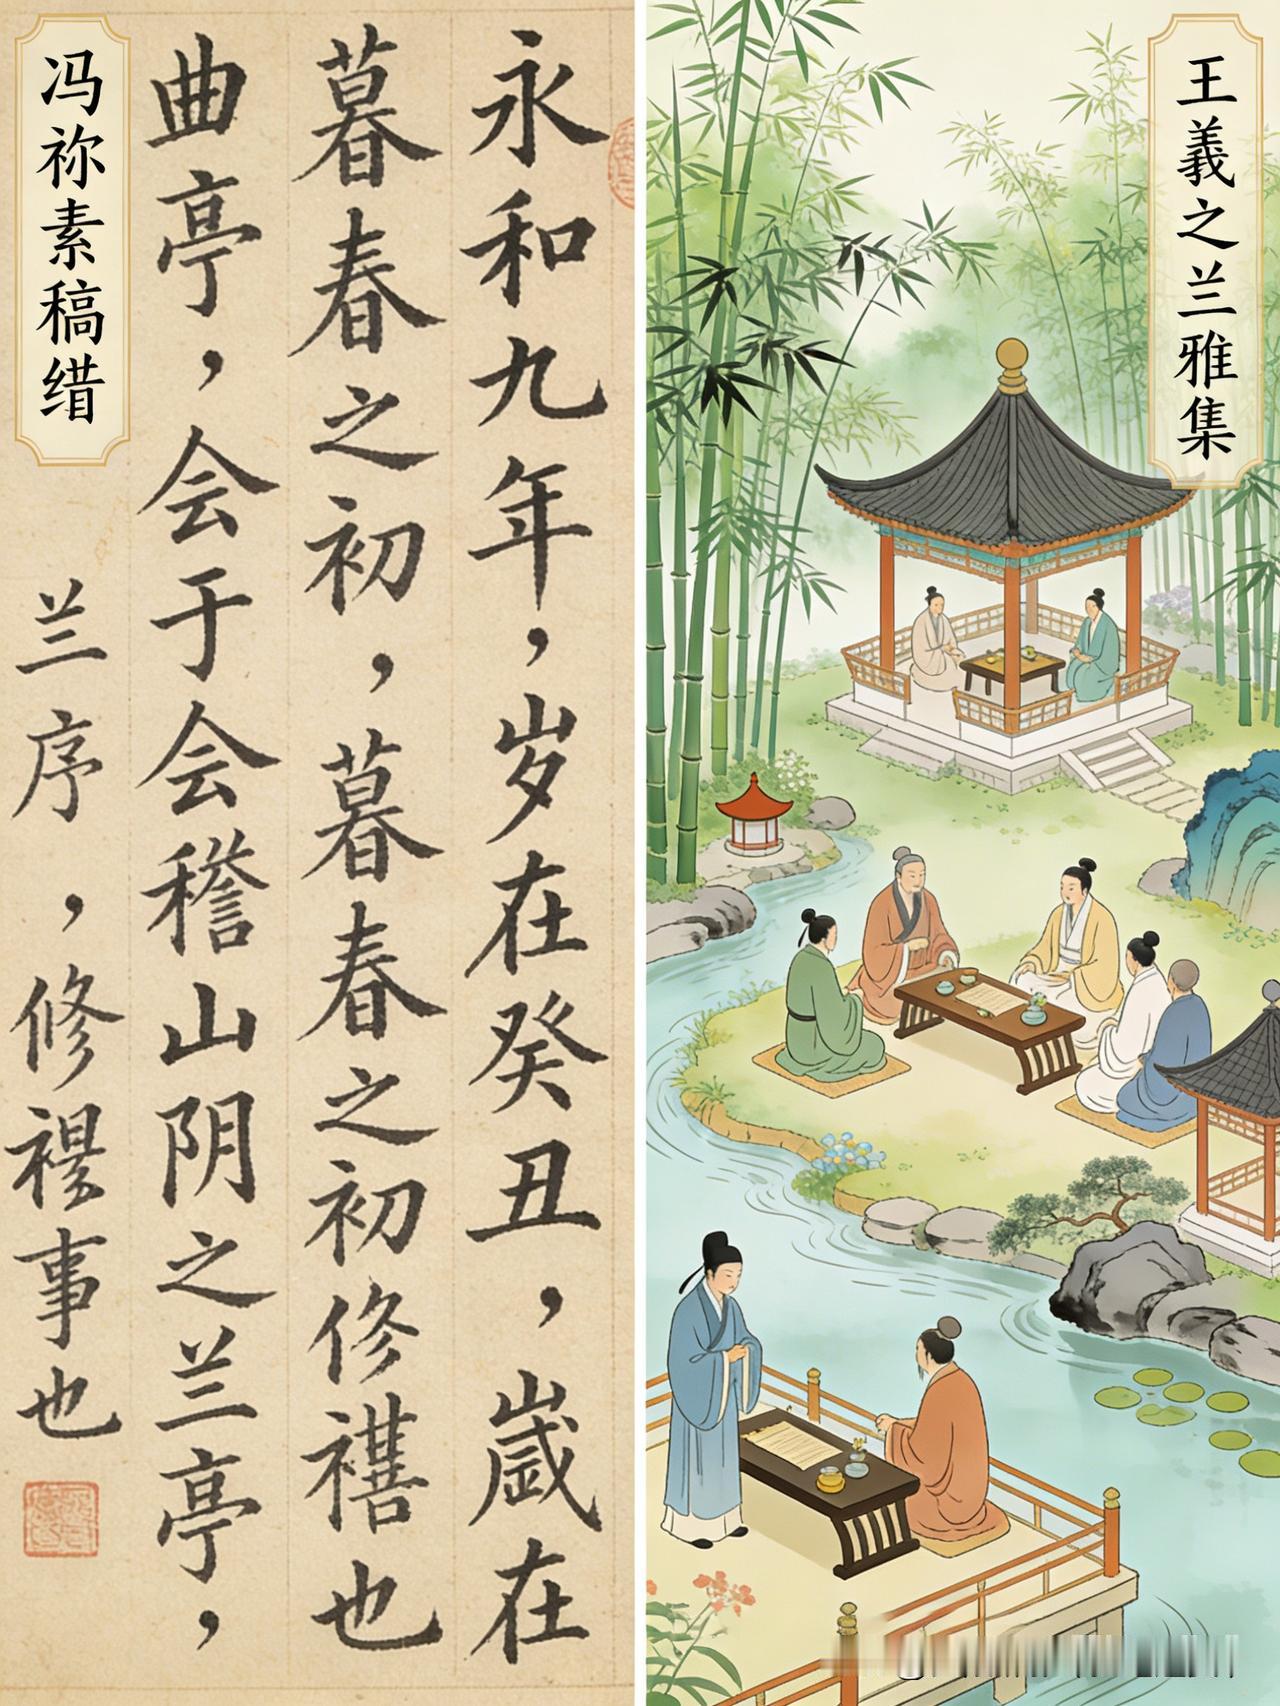 冯祢素稿缉
永和九年，岁在癸丑，歲在
暮春之初，暮春之初修禊也
曲亭，会于会稽山阴之兰亭，
兰序，修禊事也
王羲之兰雅集